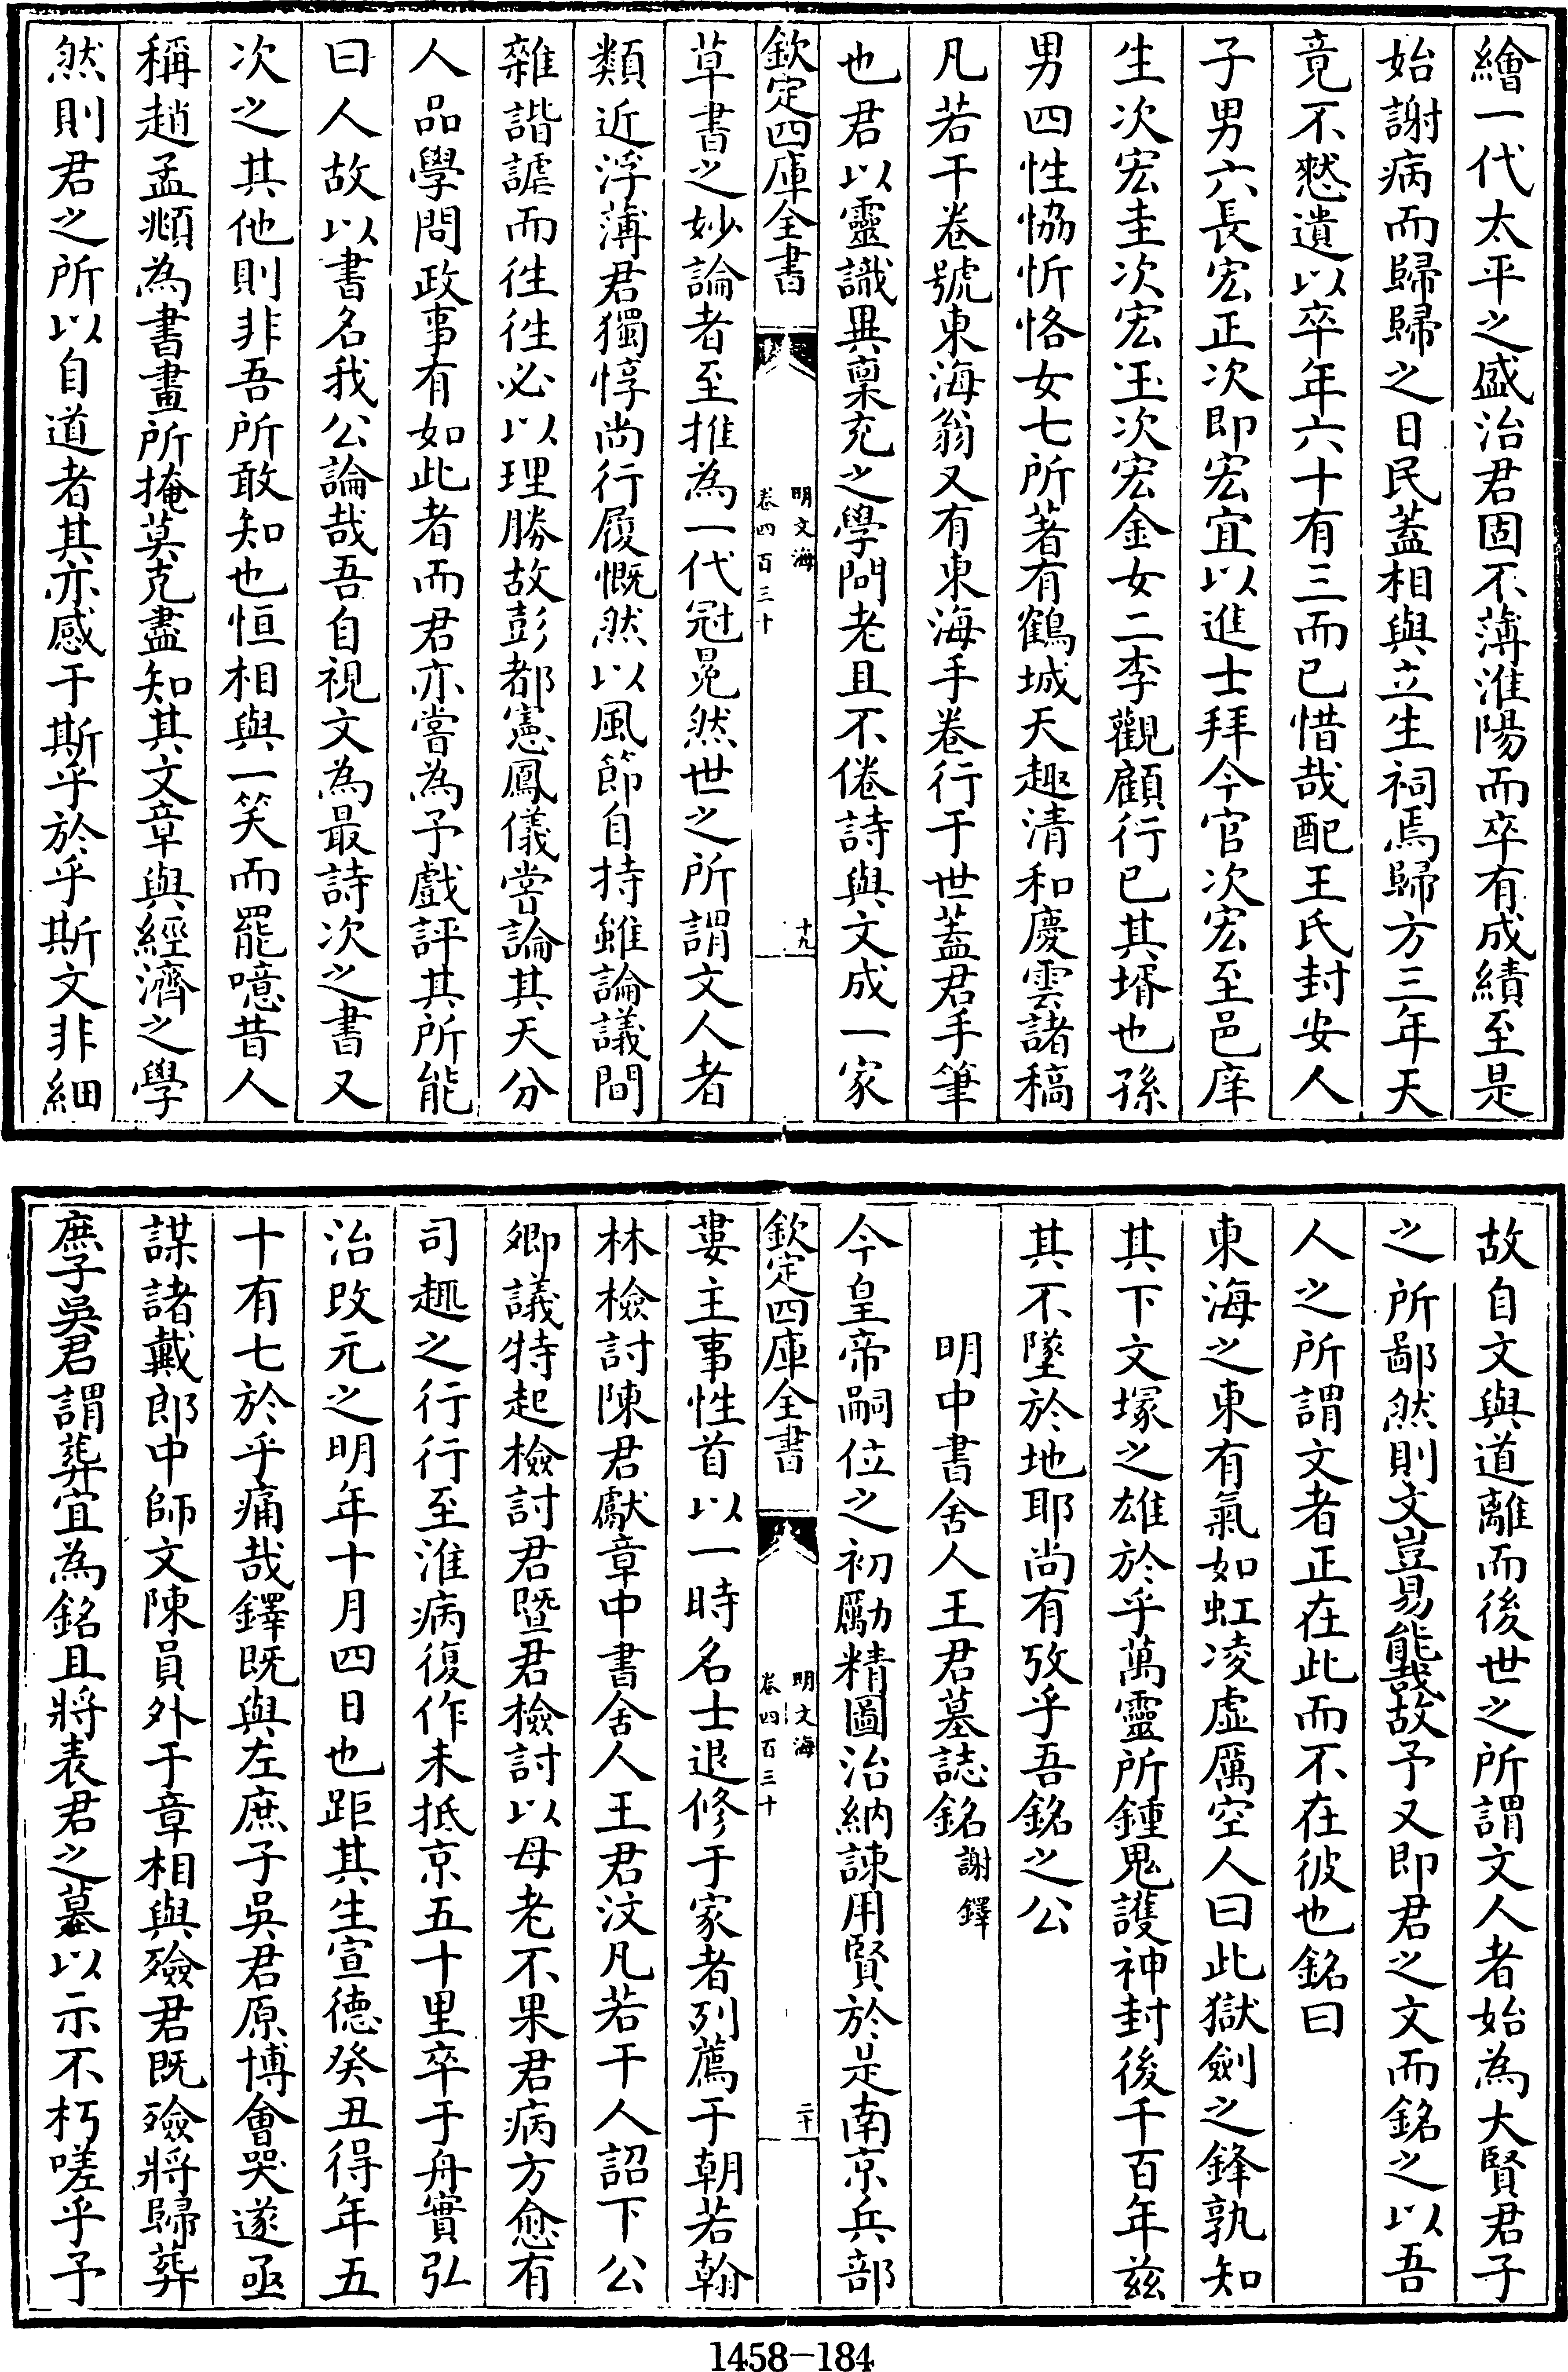 繪一代太平之盛治君固不薄淮陽而卒有成績至是
始謝病而歸歸之日民蓋相與立生祠焉歸方三年天
竟不憖遺以卒年六十有三而已惜哉配王氏封安人
子男六長宏正次即宏宜以進士拜今官次宏至邑庠
生次宏圭次宏玉次宏金女二李觀顧衍已其壻也孫
男四性恊忻恪女七所著有鶴城天趣清和慶雲諸稿
凡若干卷號東海翁又有東海手卷行于世蓋君手筆
也君以靈識異稟充之學問老且不倦詩與文成一家
欽定四庫全書
明文海
卷四百三十
十九
草書之妙論者至推為一代冠冕然世之所謂文人者
類近浮薄君獨惇尚行履慨然以風節自持雖論議間
雜諧謔而徃徃必以理勝故彭都憲鳳儀嘗論其天分
人品學問政事有如此者而君亦嘗為予戲評其所能
曰人故以書名我公論哉吾自視文為最詩次之書又
次之其他則非吾所敢知也恒相與一笑而罷噫昔人
稱趙孟頫為書畫所掩莫克盡知其文章與經濟之學
然則君之所以自道者其亦感于斯乎於乎斯文非細
故自文與道離而後世之所謂文人者始為大賢君子
之所鄙然則文豈易能哉故予又即君之文而銘之以吾
人之所謂文者正在此而不在彼也銘曰
東海之東有氣如虹凌虛厲空人曰此獄劍之鋒孰知
其下文塚之雄於乎萬靈所鍾鬼護神封後千百年兹
其不墜於地耶尚有攷乎吾銘之公
明中書舍人王君墓誌銘謝鐸
今皇帝嗣位之初勵精圖治納諫用賢於是南京兵部
欽定四庫全書
明文海
卷四百三十
二十
婁主事性首以一時名士退修于家者列薦于朝若翰
林檢討陳君獻章中書舍人王君汶凡若干人詔下公
卿議特起檢討君暨君檢討以母老不果君病方愈有
司趣之行行至淮病復作未抵京五十里卒于舟實弘
治改元之明年十月四日也距其生宣德癸丑得年五
十有七於乎痛哉鐸既與左庶子吳君原博會哭遂亟
謀諸戴郎中師文陳員外于章相與殮君既殮將歸葬
庶子吳君謂葬宜為銘且將表君之墓以示不朽嗟乎予
1458-184